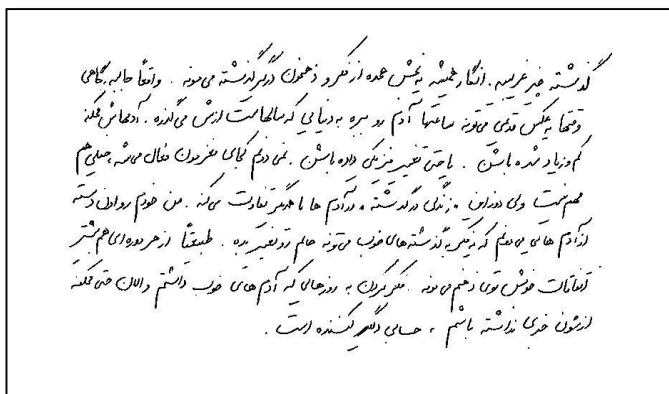 گذشته چیز غریبیه. انگار همیشه یه بخش عمده از فکر و ذهنمون درگیر گذشته می‌مونه. واقعاً جالبه، گاهی
وقتها یه عکس قدیمی می‌تونه ساعتها آدم رو ببره به دنیایی که سالهاست ازش می‌گذره. آدمهاش ممکنه
کم و زیاد شده باشن. یا حتی تغییر فیزیکی داده باشن. نمی دونم کجای مغزمون فعال می‌شه، خیلی هم
مهم نیست ولی دوز این «زندگی در گذشته» در آدم ها با همدیگر تفاوت می‌کنه. من خودم رو از اون دسته
از آدم هایی می‌دونم که فکر به گذشته‌های خوب می‌تونه حالم رو تغییر بده. طبیعتاً از هر دوره‌ای هم بیشتر
اتفاقات خوش توی ذهنم می‌مونه. فکر کردن به روزهایی که آدم‌های خوب داشتم و الان حتی ممکنه
ازشون خبری نداشته باشم، حسابی دلگیر کننده است.